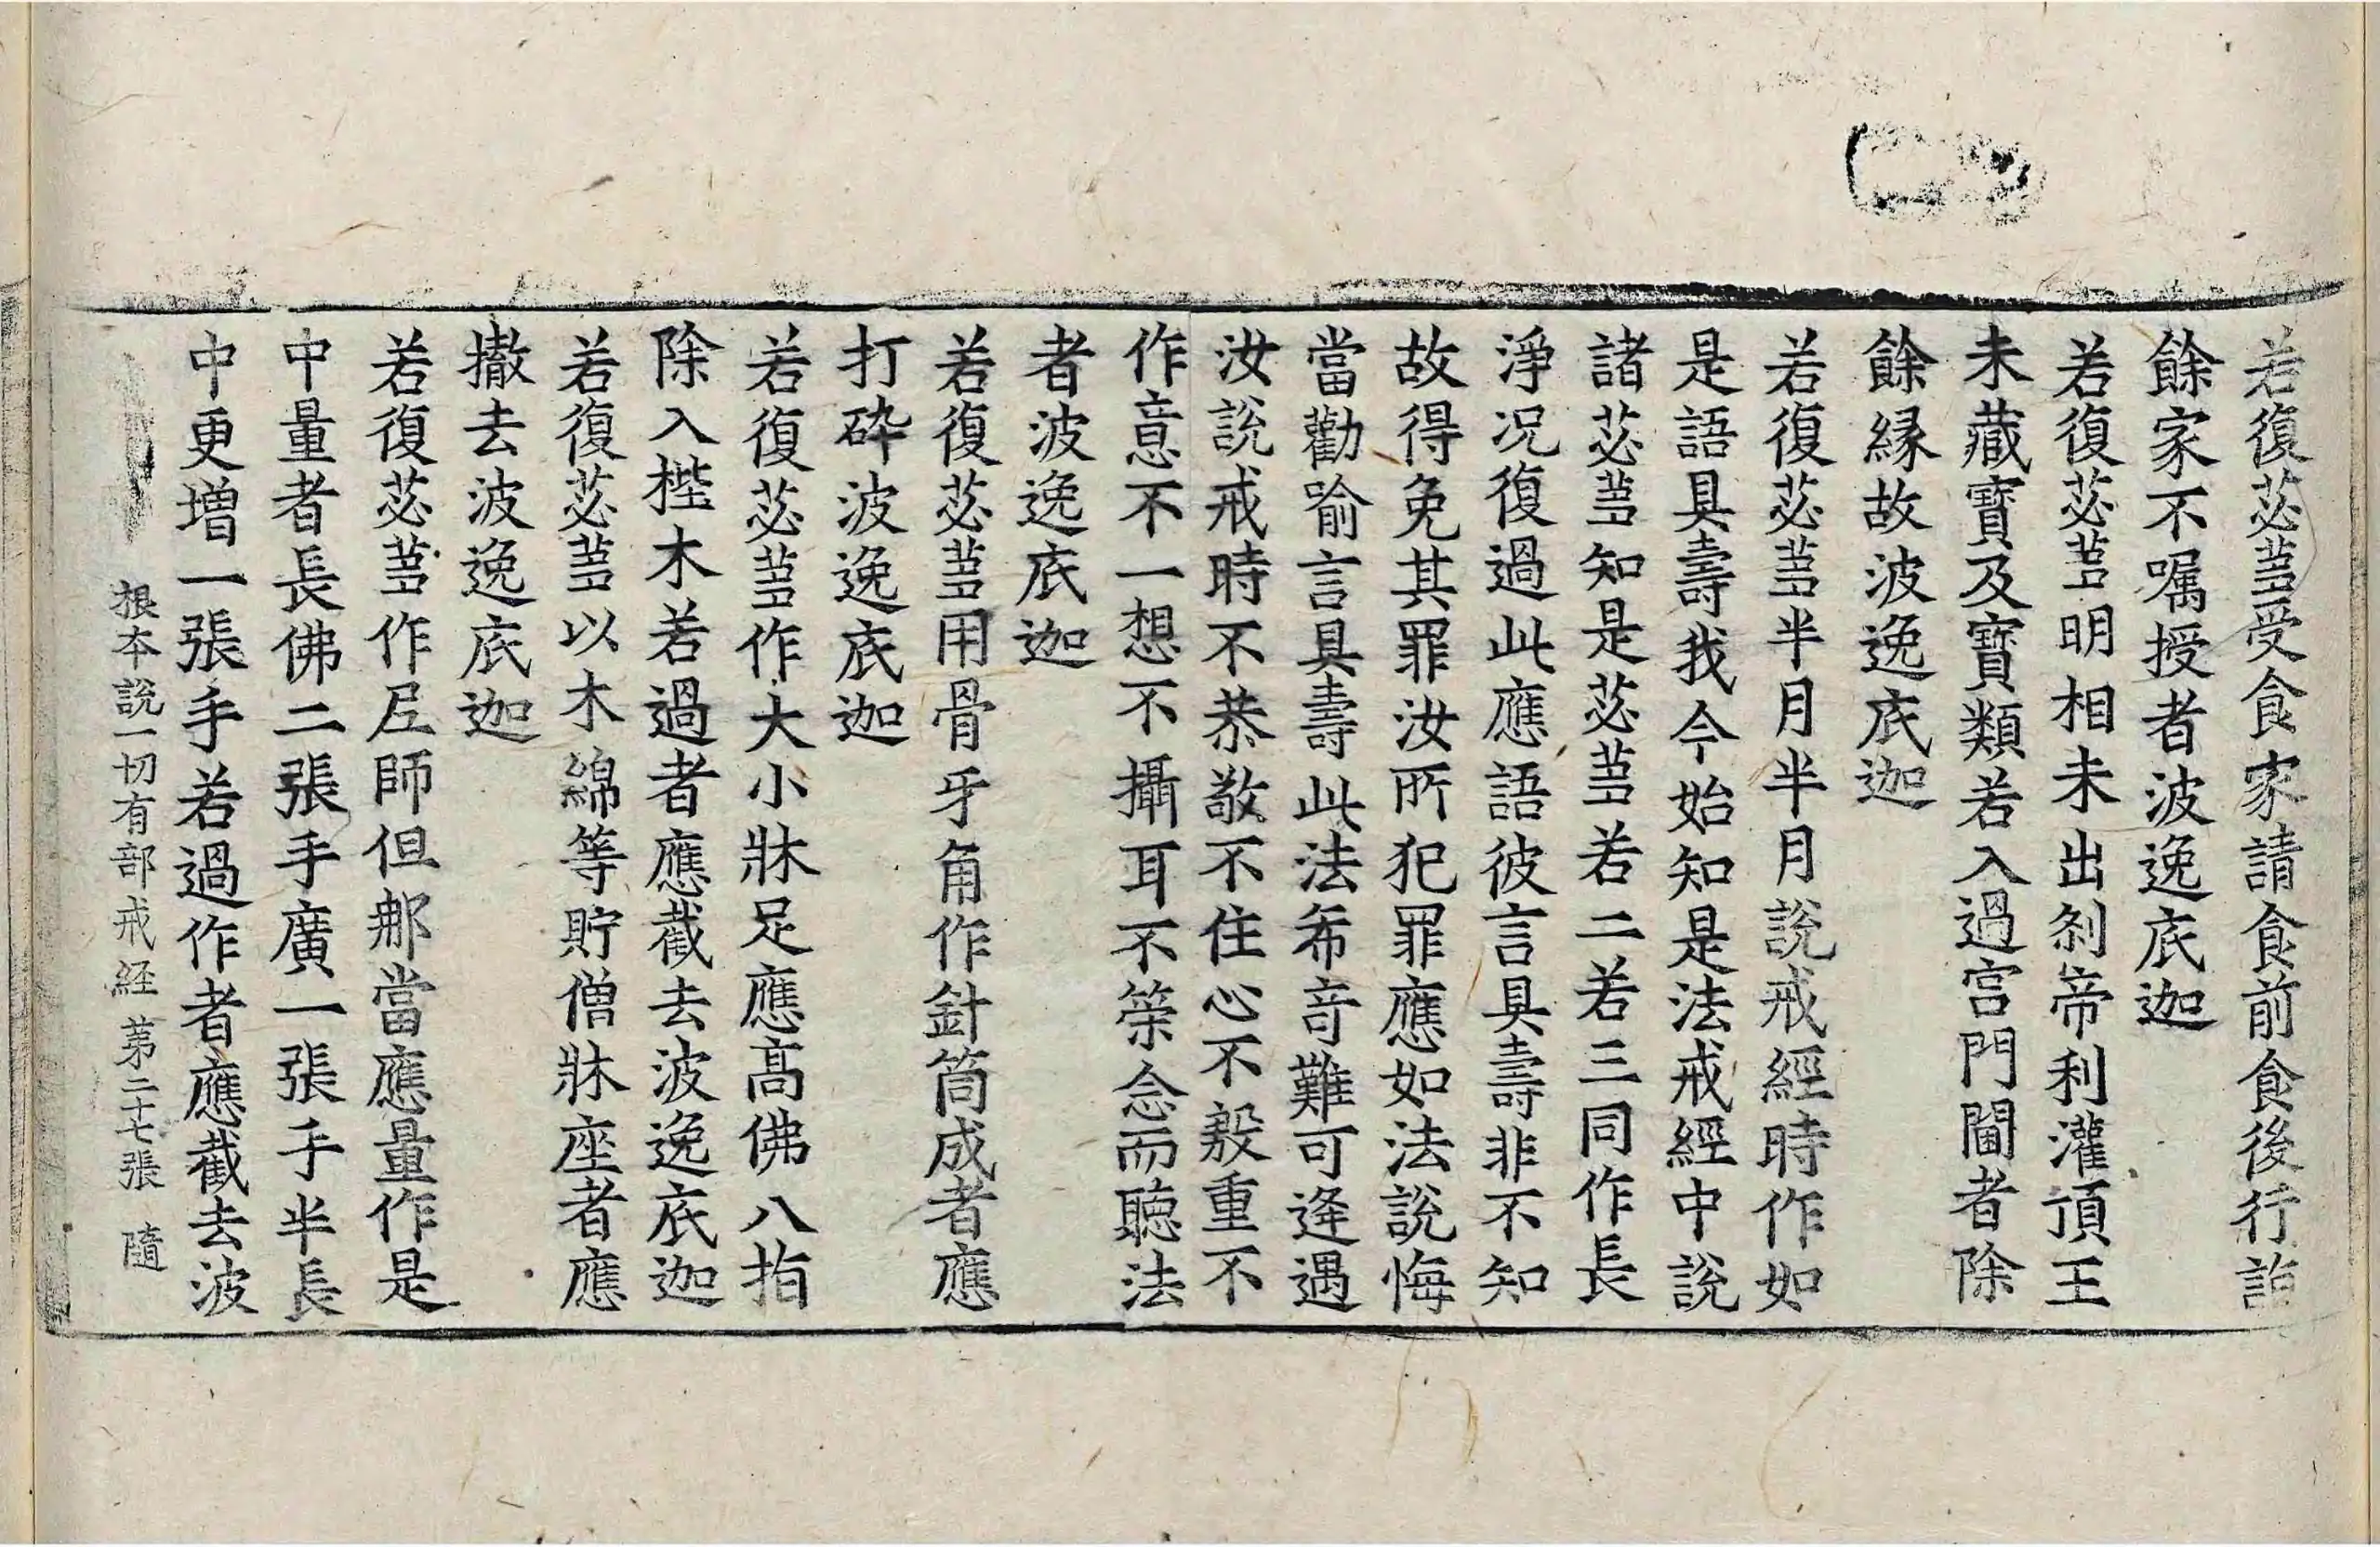 若復苾蒭受食家請食前食後行詣
餘家不嘱授者波逸底迦
若復苾蒭明相未出刹帝利灌頂王
未藏寶及寶類若入過宫門閫者除
餘縁故波逸底迦
若復苾蒭半月半月說戒經時作如
是語具壽我今始知是法戒經中說
諸苾蒭知是苾蒭若二若三同作長
淨况復過此應語彼言具壽非不知
故得免其罪汝所犯罪應如法說悔
當勸喻言具壽此法希竒難可逢遇
汝說戒時不恭敬不住心不殷重不
作意不一想不攝耳不䇿念而聽法
者波逸底迦
若復苾蒭用骨牙角作針筒成者應
打碎波逸底迦
若復苾蒭作大小牀足應髙佛八指
除入梐木若過者應截去波逸底迦
若復苾蒭以木綿等貯僧牀座者應
撤去波逸底迦
若復苾蒭作尼師但那當應量作是
中量者長佛二張手廣一張手半長
中更增一張手若過作者應截去波
根本說一切有部戒経 第二十七張 隨